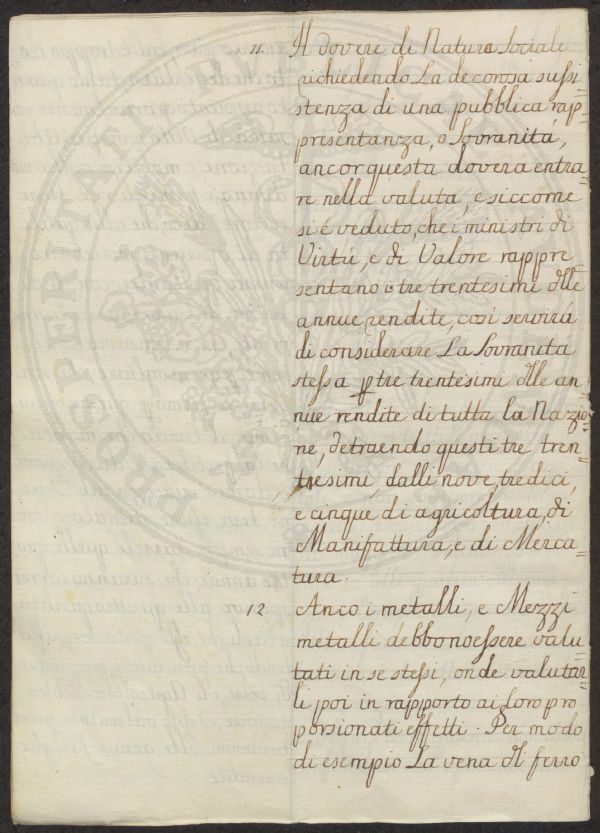 11. Il dovere di Natura Sociale
richiedendo La decorosa sussi=
stenza di una pubblica rap=
presentanza, o Sovranitá,
ancor questa doverá entra=
re nella valuta, e siccome
si é veduto, che i ministri di
Virtú, e di Valore rappre=
sentano i tre trentesimi dlle
annue rendite, cosi servirá
di considerare La Sovranitá
stessa p tre trentesimi dlle an=
nue rendite di tutta la Nazio=
ne, detraendo questi tre tren=
tesimi, dalli nove, tredici,
e cinque di agricoltura, di
Manifattura, e di Merca=
tura.
12. Anco i metalli, e Mezzi
metalli debbono essere valu=
tati in se stessi, onde valutar=
li poi in rapporto ai loro pro
porsionati effetti. Per modo
di esempio La vena dl ferro